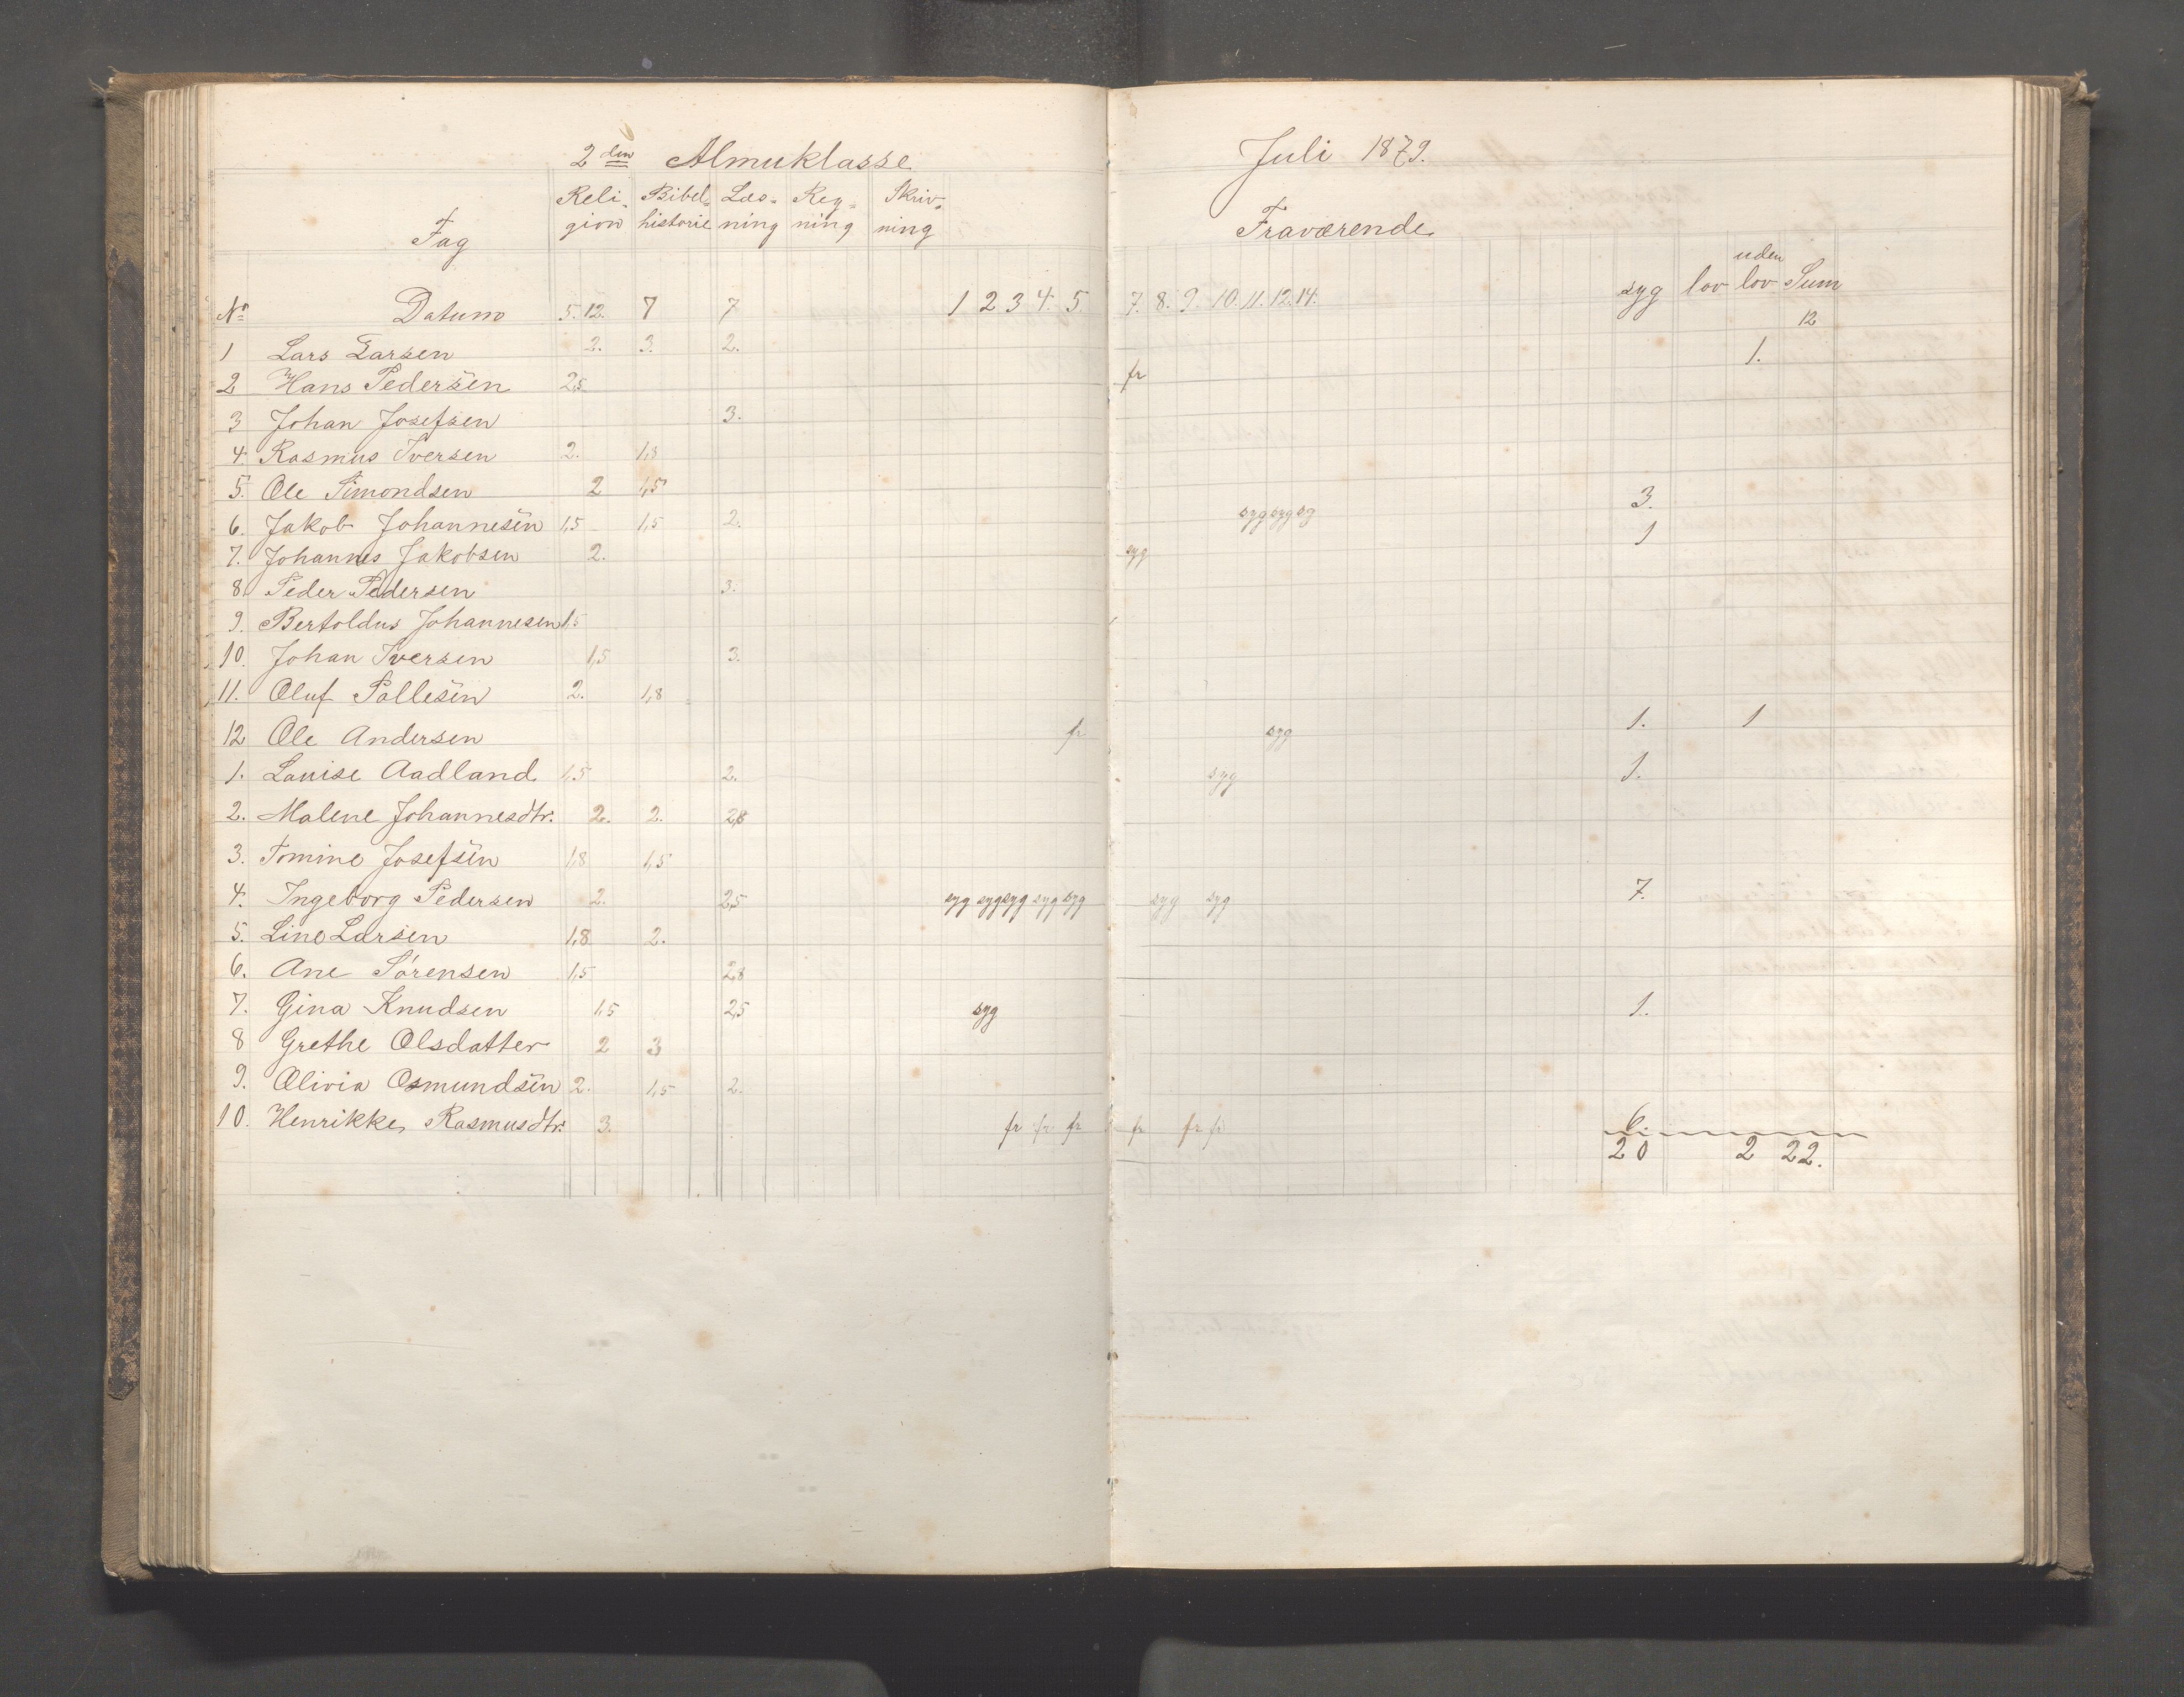 2den Almuklasse
Juli 1879.
Fag Religion Bibelhistorie Læsning Regning Skrivning
Fraværende
syg lov uden lov Sum
No Datum 5. 12. 7 7 1 2 3 4. 5. 7. 8. 9. 10. 11. 12. 14. 12
1 Lars Larsen 2. 3. 2. 1.
2 Hans Pedersen 2,5 fr
3 Johan Josefsen 3.
4. Rasmus Iversen 2. 1,8
5. Ole Simondsen 2 1,5
6. Jakob Johannesen 1,5 1,5 2. syg syg sg 3.
7. Johannes Jakobsen 2. syg 1
8. Peder Pedersen 3.
9. Bertoldus Johannesen 1,5
10. Johan Iversen 1,5 3.
11. Oluf Pallesen 2. 1,8
12 Ole Andersen fr syg 1. 1
1. Louise Aadland 1,5 2. syg 1.
2. Malene Johannesdtr. 2. 2. 2,8
3. Tomine Josefsen 1,8 1,5
4. Ingeborg Pedersen 2. 2,5 syg syg syg syg syg syg syg 7.
5. Line Larsen 1,8 2.
6. Ane Sørensen 1,5 2,8
7. Gina Knudsen 1,5 2,5 syg 1.
8 Grethe Olsdatter 2 3
9. Olivia Osmundsen 2. 1,5 2.
10. Henrikke Rasmusdtr. 3. fr fr fr fr fr fr 6.
20 2 22.